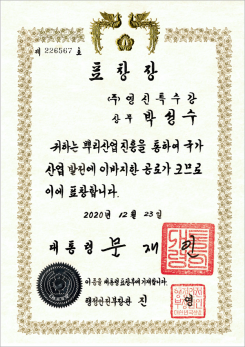 제 226567 호
표창장
(주)영신특수강
상무 박성수
귀하는 뿌리산업진흥을 통하여 국가
산업 발전에 이바지한 공로가 크므로
이에 표창합니다.
2020년 12월 23일
대통령 문재인
이 증을 대통령표창부에 기재합니다.
행정안전부장관 진 영